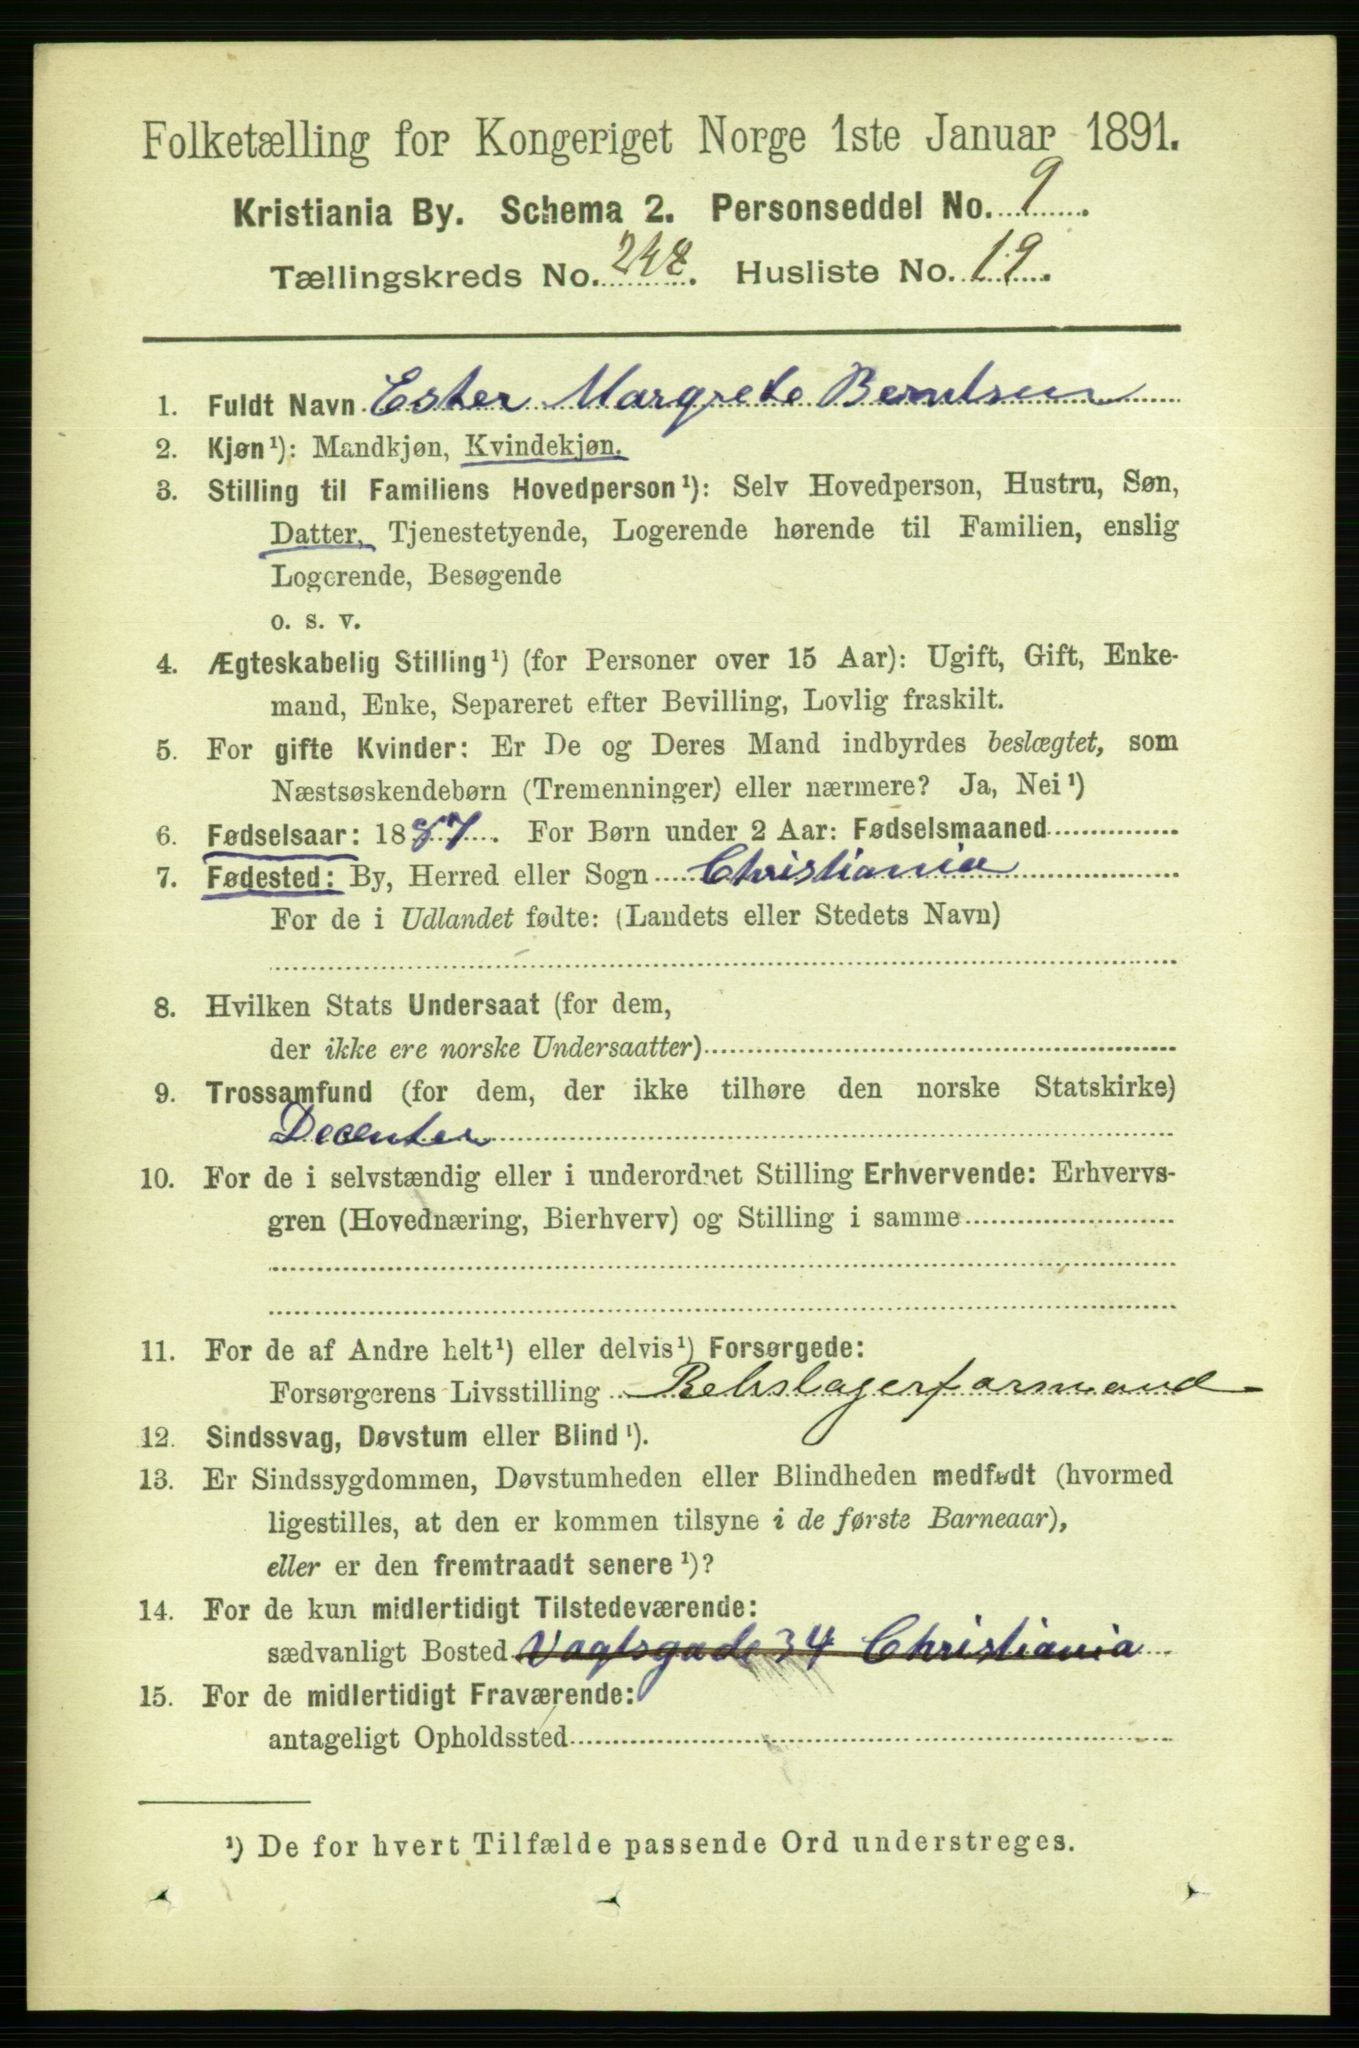 Folketælling for Kongeriget Norge 1ste Januar 1891.
Kristiania By. Schema 2. Personseddel No. 9.
Tællingskreds No. 248. Husliste No. 19.
1. Fuldt Navn Ester Margrete Berntsen
2. Kjøn¹): Mandkjøn, Kvindekjøn.
3. Stilling til Familiens Hovedperson¹): Selv Hovedperson, Hustru, Søn,
Datter, Tjenestetyende, Logerende hørende til Familien, enslig
Logerende, Besøgende
o. s. v.
4. Ægteskabelig Stilling¹) (for Personer over 15 Aar): Ugift, Gift, Enke-
mand, Enke, Separeret efter Bevilling, Lovlig fraskilt.
5. For gifte Kvinder: Er De og Deres Mand indbyrdes beslægtet, som
Næstsøskendebørn (Tremenninger) eller nærmere? Ja, Nei¹)
6. Fødselsaar: 1887. For Børn under 2 Aar: Fødselsmaaned
7. Fødested: By, Herred eller Sogn Christiania
For de i Udlandet fødte: (Landets eller Stedets Navn)
8. Hvilken Stats Undersaat (for dem,
der ikke ere norske Undersaatter)
9. Trossamfund (for dem, der ikke tilhøre den norske Statskirke)
Decenter
10. For de i selvstændig eller i underordnet Stilling Erhvervende: Erhvervs-
gren (Hovednæring, Bierhverv) og Stilling i samme
11. For de af Andre helt¹) eller delvis¹) Forsørgede:
Forsørgerens Livsstilling Rebslagerformand
12. Sindssvag, Døvstum eller Blind¹).
13. Er Sindssygdommen, Døvstumheden eller Blindheden medfødt (hvormed
ligestilles, at den er kommen tilsyne i de første Barneaar),
eller er den fremtraadt senere¹)?
14. For de kun midlertidigt Tilstedeværende:
sædvanligt Bosted Vogtsgade 34 Christiania
15. For de midlertidigt Fraværende:
antageligt Opholdssted
¹) De for hvert Tilfælde passende Ord understreges.